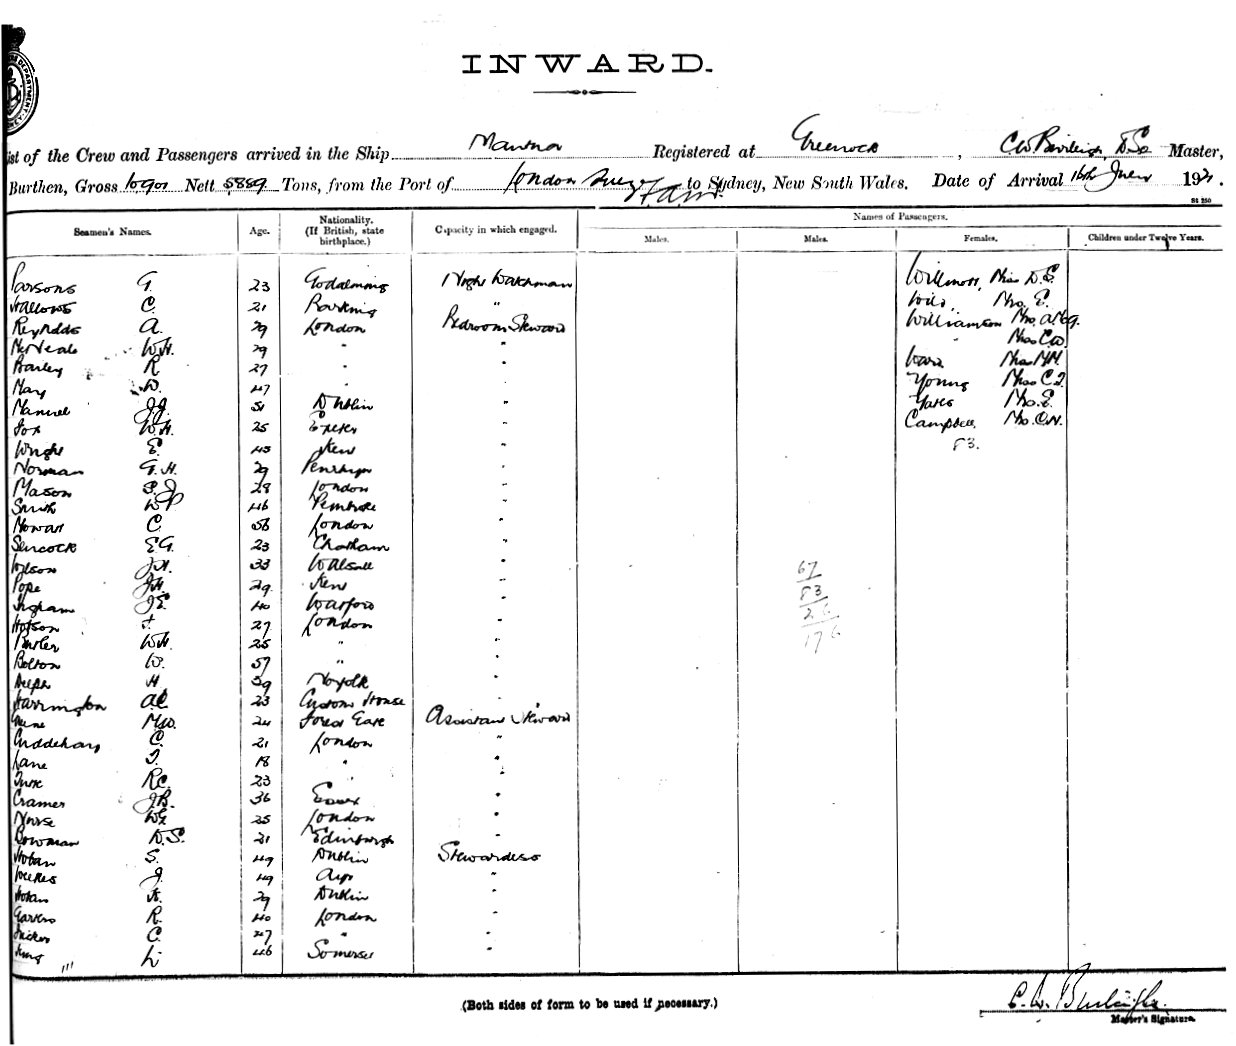 INWARD.
List of the Crew and Passengers arrived in the Ship Mantua Registered at Greenock, C.W. Burleigh, D.S.O. Master,
Burthen, Gross 10901 Nett 5889 Tons, from the Port of London to Sydney, New South Wales. Date of Arrival 16th 192
Seamen's Names. Age. Nationality. (If British, state birthplace.) Capacity in which engaged. Names of Passengers.
Males. Males. Females. Children under Twelve Years.
Parsons G. 23 Godalming Night Watchman Willmott, Miss D.S.
Hallows C. 21 Barking " Wild, Mrs. E.
Reynolds A. 29 London Bedroom Steward Williamson Mrs.
McNeale W.H. 29 " " " Miss C.W.
Bailey R 27 " " Ward Miss M.M.
May W. 47 " " Young Miss C.J.
Manuel J.J. 51 Dublin " Yates Mrs. E.
Fox W.H. 25 Exeter " Campbell, Mrs. C.N.
Wright E. 45 Kew " 83.
Norman G.H. 29 Penrhyn "
Mason S.J. 28 London "
Smith W P 46 Pembroke "
Mowatt C. 56 London "
Sencock E.G. 23 Chatham "
Wilson J.H. 33 Walsall "
Pope J.H. 29 Kew "
Ingham J.E. 40 Watford "
Hopson F. 27 London "
Butler W.H. 25 " "
Bolton W. 57 " "
H 39 Norfolk "
Harrington A.C. 23 Custom House "
M.W. 24 Forest Gate Assistant Steward
Cuddehay C. 21 London "
Lane T. 18 " "
Turk R.C. 23 " "
Cramer J.B. 36 Essex "
Nurse W.G. 25 London "
Bowman D.S. 21 Edinburgh "
Hoban S. 49 Dublin Stewardess
Weekes J. 49 Ayr "
Hoban A. 29 Dublin "
R. 40 London "
C. 47 " "
King L. 46 Somerset "
67
83
26
176
(Both sides of form to be used if necessary.)
C. W. Burleigh.
Master's Signature.